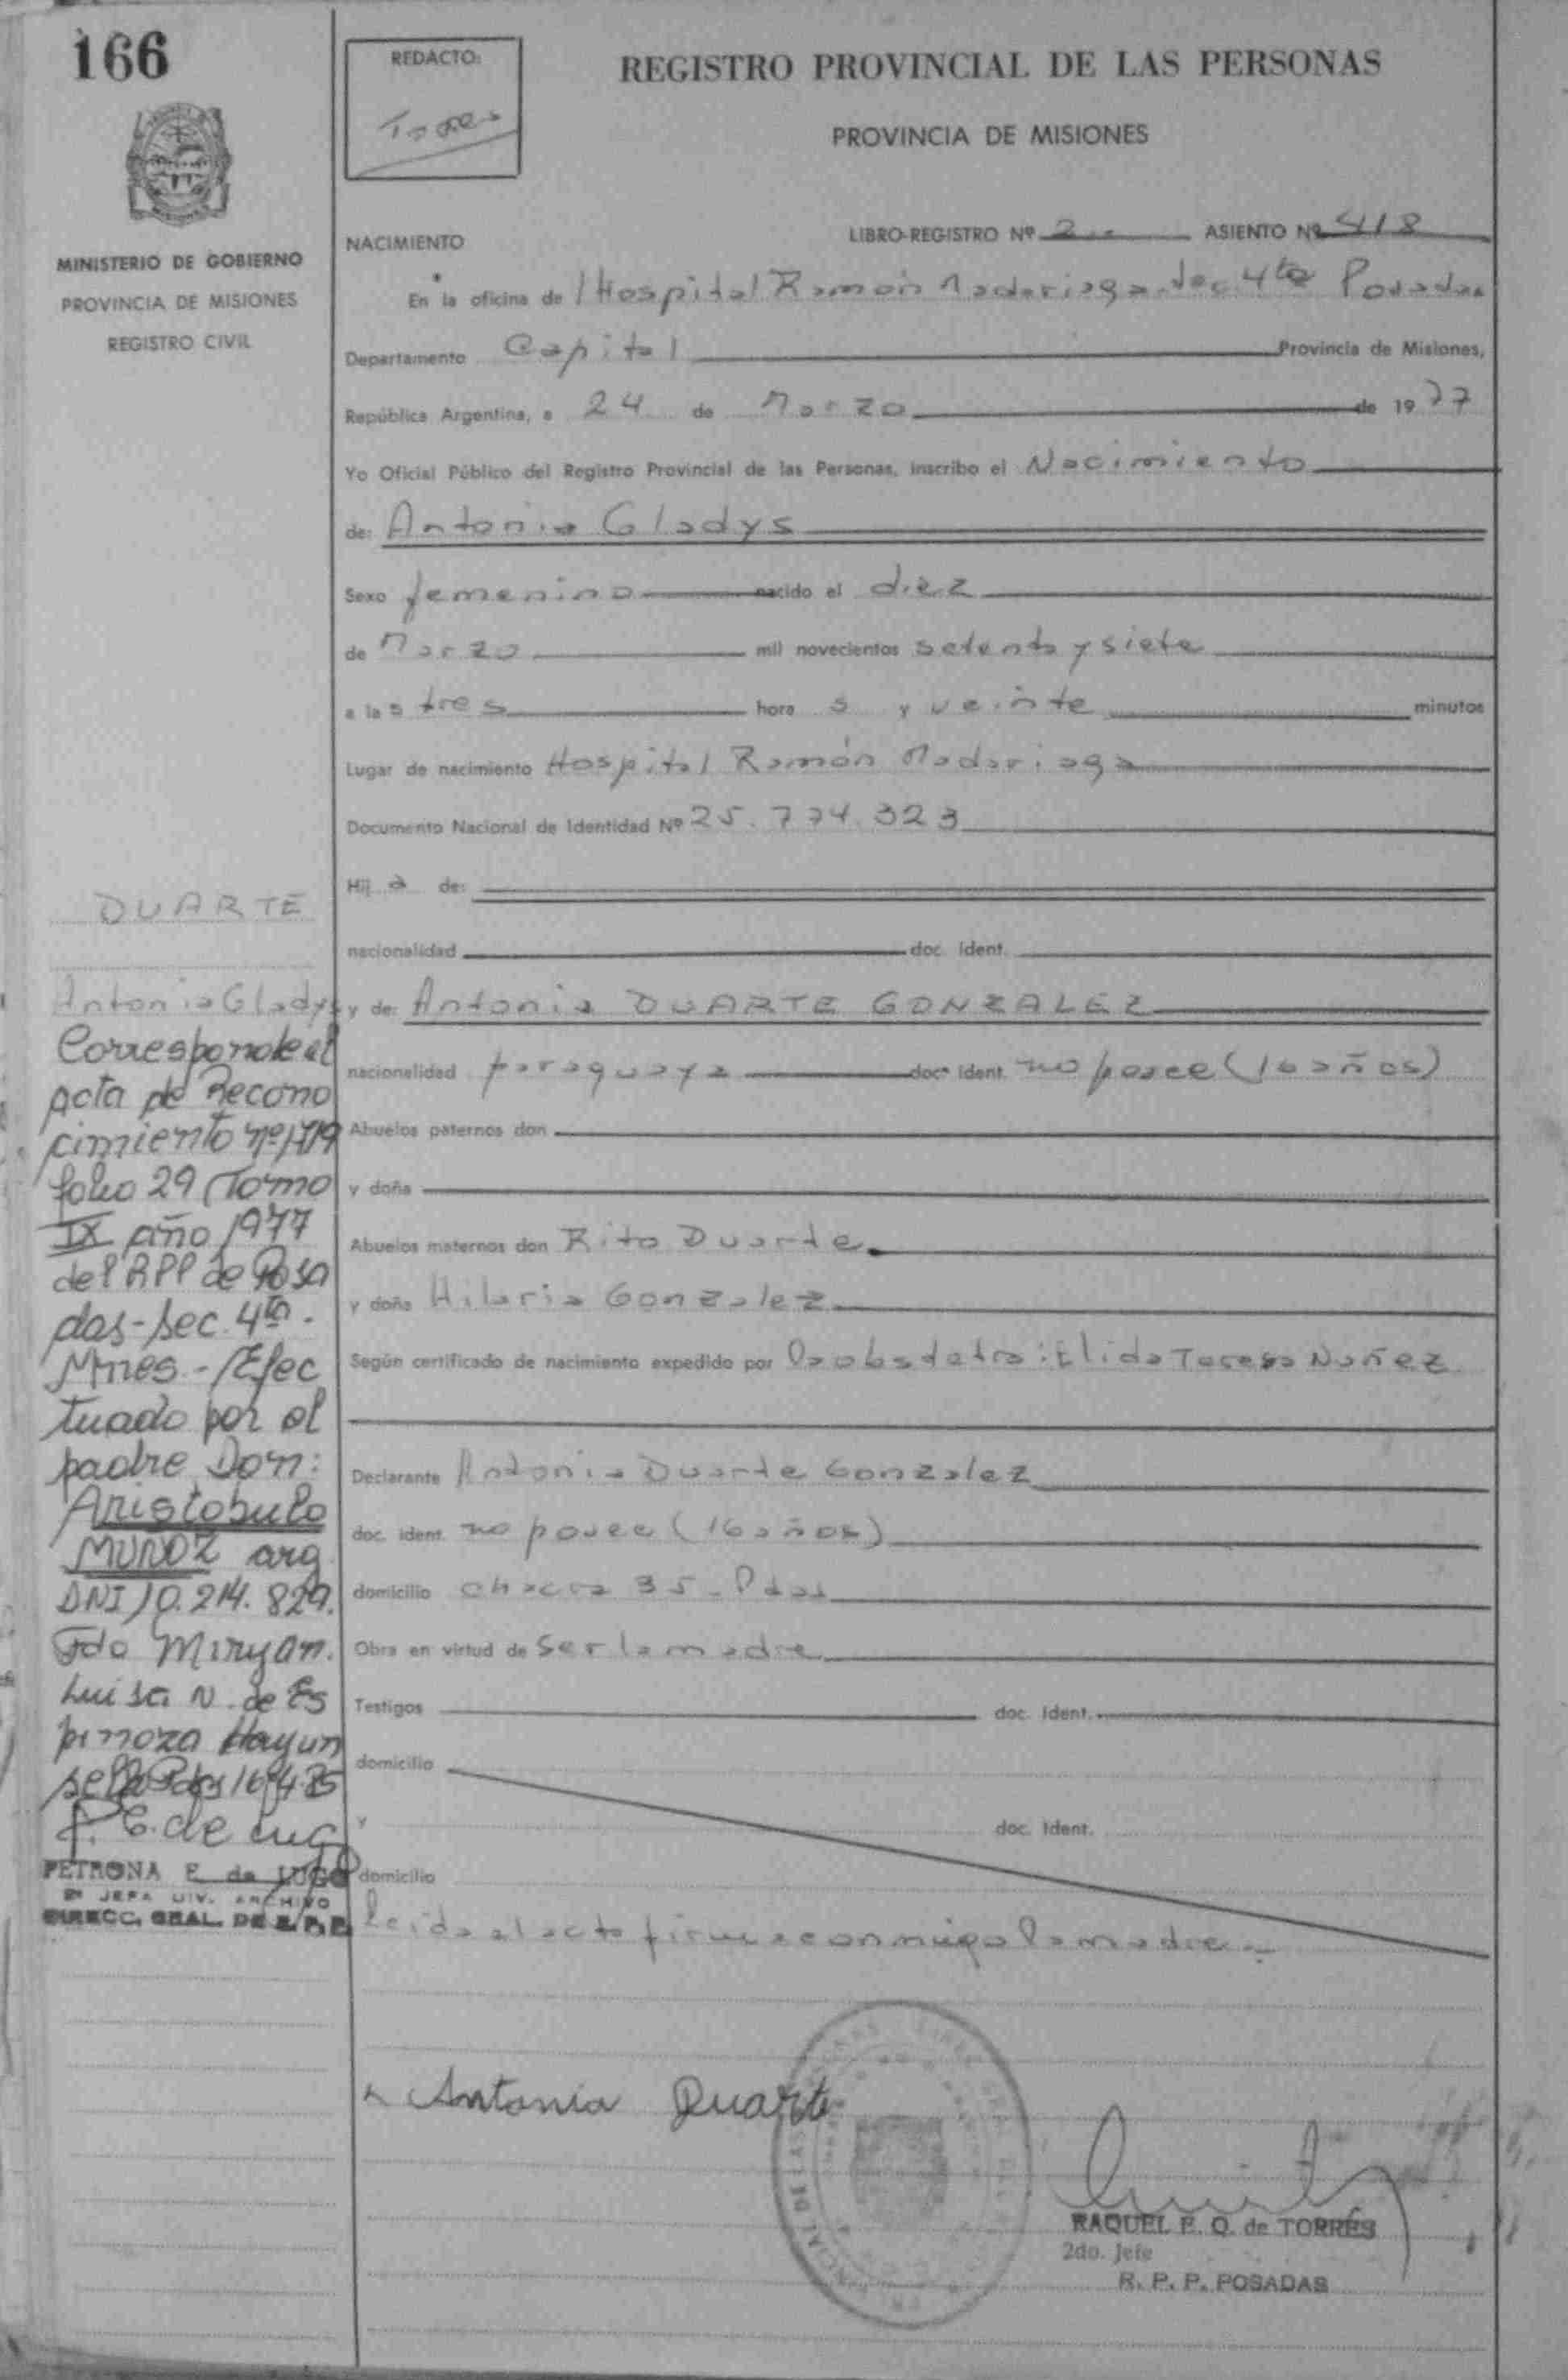 166
REDACTO:
Torres
REGISTRO PROVINCIAL DE LAS PERSONAS
PROVINCIA DE MISIONES
MINISTERIO DE GOBIERNO
PROVINCIA DE MISIONES
REGISTRO CIVIL
NACIMIENTO
LIBRO-REGISTRO Nº 2 ASIENTO Nº 418
En la oficina de Hospital Ramón Madariaga Sec 4ta Posadas
Departamento Capital Provincia de Misiones,
República Argentina, a 24 de Marzo de 1977
Yo Oficial Público del Registro Provincial de las Personas, inscribo el Nacimiento
de: Antonia Gladys
Sexo femenino nacido el diez
de Marzo mil novecientos setenta y siete
a las tres hora s y veinte minutos
Lugar de nacimiento Hospital Ramón Madariaga
Documento Nacional de Identidad Nº 25.774.323
Hij a de:
nacionalidad doc. Ident.
y de: Antonia DUARTE GONZALEZ
nacionalidad paraguaya doc. Ident. no posee (16 años)
Abuelos paternos don
y doña
Abuelos maternos don Rito Duarte
y doña Hilaria Gonzalez
Según certificado de nacimiento expedido por la obstetra: Elida Teresa Nuñez
Declarante Antonia Duarte Gonzalez
doc. ident. no posee (16 años)
domicilio chacra 35 - Pdas
Obra en virtud de ser la madre
Testigos doc. Ident.
domicilio
y doc. Ident.
domicilio
Leida el acta firma conmigo la madre
Antonia Duarte
RAQUEL E. Q. de TORRES
2do. Jefe
R. P. P. POSADAS
DUARTE
Antonia Gladys
Corresponde al
acta de Recono
cimiento nº
folio 29 Tomo
IX año 1977
del RPP de Posa
das - Sec. 4ta -
Mnes. - Efec
tuado por el
padre Don:
Aristobulo
MUÑOZ arg
DNI 10.214.829.
Fdo Miryan.
Luisa N. de Es
pinoza Hay un
sello Pdas
P. E. de Lugo
PETRONA E. de LUGO
2ª JEFA DIV. ARCHIVO
DIRECC. GRAL. DE R. P. P.